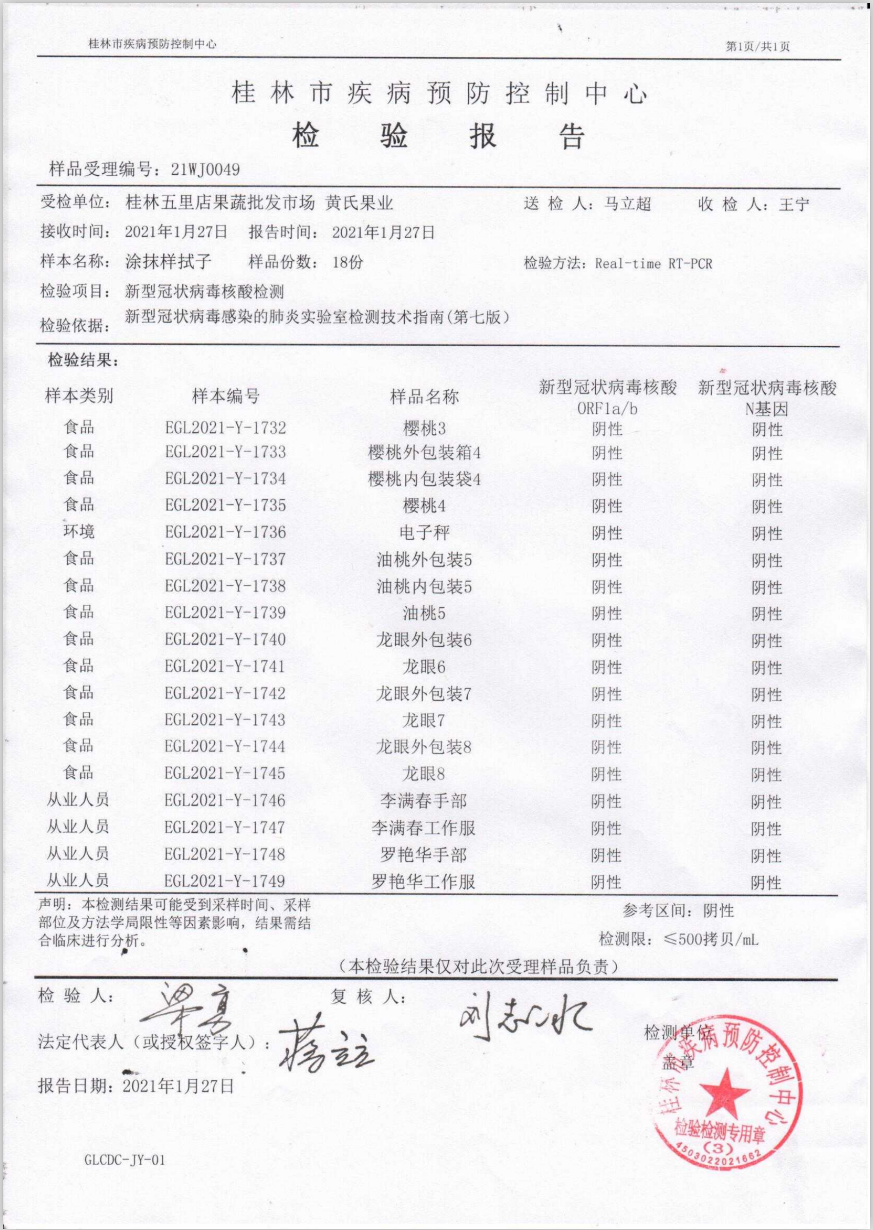 桂林市疾病预防控制中心 第1页/共1页
桂林市疾病预防控制中心
检验报告
样品受理编号：21WJ0049
受检单位： 桂林五里店果蔬批发市场 黄氏果业 送 检 人：马立超 收 检 人：王宁
接收时间： 2021年1月27日 报告时间： 2021年1月27日
样本名称： 涂抹样拭子 样品份数： 18份 检验方法：Real-time RT-PCR
检验项目： 新型冠状病毒核酸检测
检验依据： 新型冠状病毒感染的肺炎实验室检测技术指南(第七版）
检验结果：
样本类别 样本编号 样品名称 新型冠状病毒核酸 ORF1a/b 新型冠状病毒核酸 N基因
食品 EGL2021-Y-1732 樱桃3 阴性 阴性
食品 EGL2021-Y-1733 樱桃外包装箱4 阴性 阴性
食品 EGL2021-Y-1734 樱桃内包装袋4 阴性 阴性
食品 EGL2021-Y-1735 樱桃4 阴性 阴性
环境 EGL2021-Y-1736 电子秤 阴性 阴性
食品 EGL2021-Y-1737 油桃外包装5 阴性 阴性
食品 EGL2021-Y-1738 油桃内包装5 阴性 阴性
食品 EGL2021-Y-1739 油桃5 阴性 阴性
食品 EGL2021-Y-1740 龙眼外包装6 阴性 阴性
食品 EGL2021-Y-1741 龙眼6 阴性 阴性
食品 EGL2021-Y-1742 龙眼外包装7 阴性 阴性
食品 EGL2021-Y-1743 龙眼7 阴性 阴性
食品 EGL2021-Y-1744 龙眼外包装8 阴性 阴性
食品 EGL2021-Y-1745 龙眼8 阴性 阴性
从业人员 EGL2021-Y-1746 李满春手部 阴性 阴性
从业人员 EGL2021-Y-1747 李满春工作服 阴性 阴性
从业人员 EGL2021-Y-1748 罗艳华手部 阴性 阴性
从业人员 EGL2021-Y-1749 罗艳华工作服 阴性 阴性
声明：本检测结果可能受到采样时间、采样
部位及方法学局限性等因素影响，结果需结
合临床进行分析。
参考区间：阴性
检测限：≤500拷贝/mL
（本检验结果仅对此次受理样品负责）
检 验 人： 复 核 人：
法定代表人（或授权签字人）：
检测单位
盖章
报告日期：2021年1月27日
桂林市疾病预防控制中心
检验检测专用章
(3)
4503022021662
GLCDC-JY-01